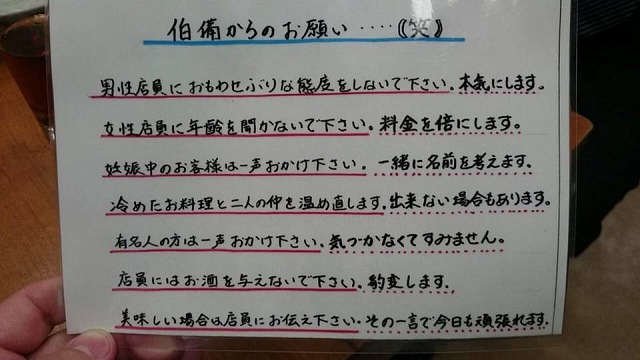 伯備からのお願い……《笑》
男性店員におもわせぶりな態度をしないで下さい。本気にします。
女性店員に年齢を聞かないで下さい。料金を倍にします。
妊娠中のお客様は一声おかけ下さい。一緒に名前を考えます。
冷めたお料理と二人の仲を温め直します。出来ない場合もあります。
有名人の方は一声おかけ下さい。気づかなくてすみません。
店員にはお酒を与えないで下さい。豹変します。
美味しい場合は店員にお伝え下さい。その一言で今日も頑張れます。